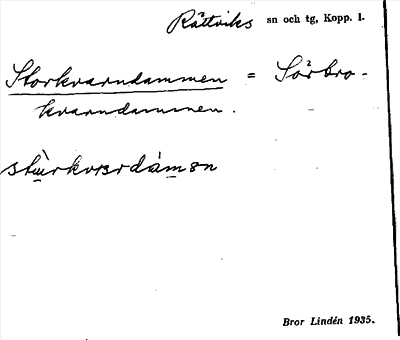 Rättviks sn och tg, Kopp. l.
Storkvarndammen = Sörbro-
kvarndammen.
Bror Lindén 1935.